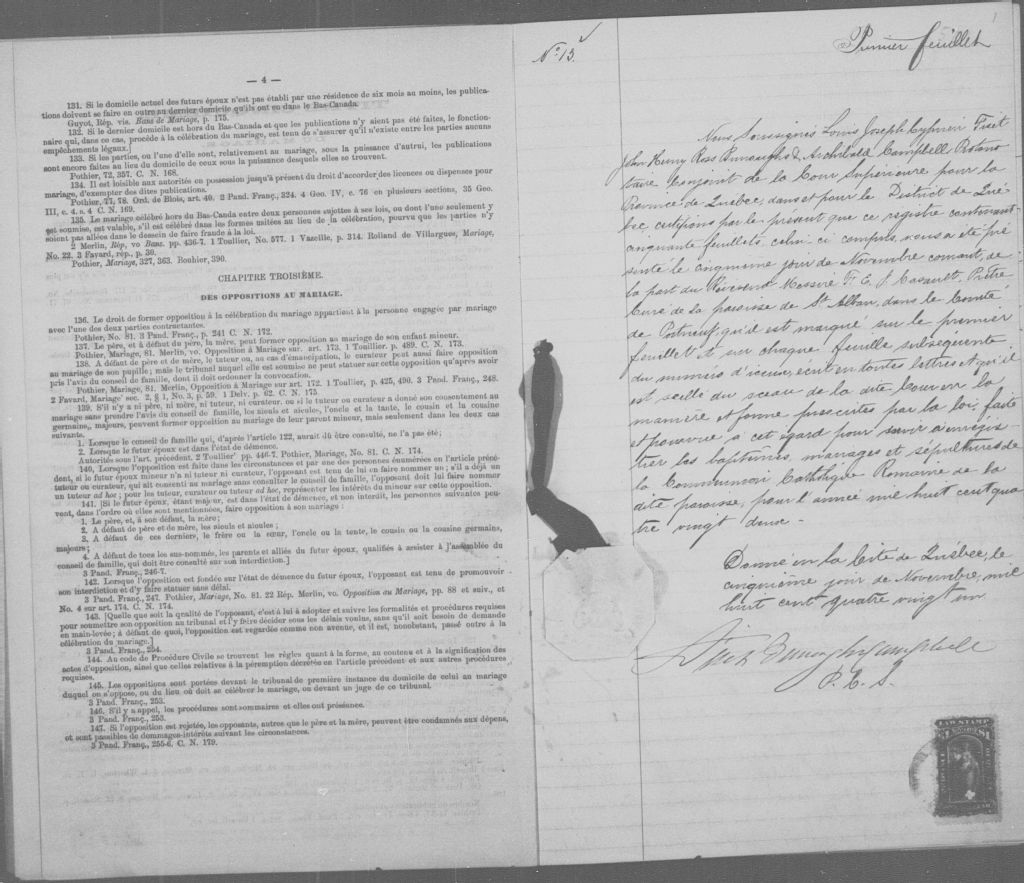 — 4 —
131. Si le domicile actuel des futurs époux n'est pas établi par une résidence de six mois au moins, les publica-
tions doivent se faire en outre au dernier domicile qu'ils ont eu dans le Bas-Canada.
Guyot, Rép. vis. Bans de Mariage, p. 175.
132. Si le dernier domicile est hors du Bas-Canada et que les publications n'y aient pas été faites, le fonction-
naire qui, dans ce cas, procède à la célébration du mariage, est tenu de s'assurer qu'il n'existe entre les parties aucuns
empêchements légaux.]
133. Si les parties, ou l'une d'elle, sont, relativement au mariage, sous la puissance d'autrui, les publications
sont encore faites au lieu du domicile de ceux sous la puissance desquels elles se trouvent.
Pothier, 72, 357. C. N. 168.
134. Il est loisible aux autorités en possession jusqu'à présent du droit d'accorder des licences ou dispenses pour
mariage, d'exempter des dites publications.
Pothier, 77, 78. Ord. de Blois, art. 40. 2 Pand. Franç., 324. 4 Geo. IV, c. 76 en plusieurs sections, 35 Geo.
III, c. 4. s. 4 C. N. 169.
135. Le mariage célébré hors du Bas-Canada entre deux personnes sujettes à ses lois, ou dont l'une seulement y
est soumise, est valable, s'il est célébré dans les formes usitées au lieu de la célébration, pourvu que les parties n'y
soient pas allées dans le dessein de faire fraude à la loi.
2 Merlin, Rép, vo Bans. pp. 436-7. 1 Toullier, No. 577. 1 Vazeille, p. 314. Rolland de Villargues, Mariage,
No. 22. 3 Favard, rép., p. 30.
Pothier, Mariage, 327, 363. Bouhier, 390.
CHAPITRE TROISIÈME.
DES OPPOSITIONS AU MARIAGE.
136. Le droit de former opposition à la célébration du mariage appartient à la personne engagée par mariage
avec l'une des deux parties contractantes.
Pothier, No. 81. 3 Pand. Franç., p. 241 C. N. 172.
137. Le père, et à défaut du père, la mère, peut former opposition au mariage de son enfant mineur.
Pothier, Mariage, 81. Merlin, vo. Opposition à Mariage sur. art. 173. 1 Toullier. p. 489. C. N. 173.
138. A défaut de père et de mère, le tuteur ou, au cas d'émancipation, le curateur peut aussi faire opposition
au mariage de son pupille; mais le tribunal auquel elle est soumise ne peut statuer sur cette opposition qu'après avoir
pris l'avis du conseil de famille, dont il doit ordonner la convocation.
Pothier, Mariage, 81. Merlin, Opposition à Mariage sur art. 172. 1 Toullier, p. 425, 490. 3 Pand. Franç., 248.
2 Favard, Mariage' sec. 2, § 1, No. 3, p. 59. 1 Delv. p. 62. C. N. 175.
139. S'il n'y a ni père, ni mère, ni tuteur, ni curateur, ou si le tuteur ou curateur a donné son consentement au
mariage sans prendre l'avis du conseil de famille, les aieuls et aieules, l'oncle et la tante, le cousin et la cousine
germains, majeurs, peuvent former opposition au mariage de leur parent mineur, mais seulement dans les deux cas
suivants.
1. Lorsque le conseil de famille qui, d'après l'article 122, aurait dû être consulté, ne l'a pas été;
2. Lorsque le futur époux est dans l'état de démence.
Autorités sous l'art. précédent. 2 Toullier' pp. 446-7. Pothier, Mariage, No. 81. C. N. 174.
140, Lorsque l'opposition est faite dans les circonstances et par une des personnes énumérées en l'article précé-
dent, si le futur époux mineur n'a ni tuteur ni curateur, l'opposant est tenu de lui en faire nommer un; s'il a déjà un
tuteur ou curateur, qui ait consenti au mariage sans consulter le conseil de famille, l'opposant doit lui faire nommer
un tuteur ad hoc; pour les tuteur, curateur ou tuteur ad hoc, représenter les intérêts du mineur sur cette opposition.
141. [Si le futur époux, étant majeur, est dans l'état de démence, et non interdit, les personnes suivantes peu-
vent, dans l'ordre où elles sont mentionnées, faire opposition à son mariage:
1. Le père, et, à son défaut, la mère;
2. A défaut de père et de mère, les aieuls et aieules;
3. A défaut de ces derniers, le frère ou la sœur, l'oncle ou la tente, le cousin ou la cousine germains,
majeurs;
4. A défaut de tous les sus-nommés, les parents et alliés du futur époux, qualifiés à assister à l'assemblée du
conseil de famille, qui doit être consulté sur son interdiction.]
3 Pand. Franç., 246-7.
142. Lorsque l'opposition est fondée sur l'état de démence du futur époux, l'opposant est tenu de promouvoir
son interdiction et d'y faire statuer sans délai.
3 Pand. Franç., 247. Pothier, Mariage, No. 81. 22 Rép. Merlin, vo. Opposition au Mariage, pp. 88 et suiv., et
No. 4 sur art. 174. C. N. 174.
143. [Quelle que soit la qualité de l'opposant, c'est à lui à adopter et suivre les formalités et procédures requises
pour soumettre son opposition au tribunal et l'y faire décider sous les délais voulus, sans qu'il soit besoin de demande
en main-levée; à défaut de quoi, l'opposition est regardée comme non avenue, et il est, nonobstant, passé outre à la
célébration du mariage.]
3 Pand. Franç., 254.
144. Au code de Procédure Civile se trouvent les règles quant à la forme, au contenu et à la signification des
actes d'opposition, ainsi que celles relatives à la péremption décrétée en l'article précédent et aux autres procédures
requises.
145. Les oppositions sont portées devant le tribunal de première instance du domicile de celui au mariage
duquel on s'oppose, ou du lieu où doit se célébrer le mariage, ou devant un juge de ce tribunal.
3 Pand. Franç., 253.
146. S'il y a appel, les procédures sont sommaires et elles ont préséance.
3 Pand. Franç., 253.
147. Si l'opposition est rejetée, les opposants, autres que le père et la mère, peuvent être condamnés aux dépens,
et sont passibles de dommages-intérêts suivant les circonstances.
3 Pand. Franç., 255-6. C. N. 179.
No 13.
Premier feuillet
Nous Soussignés Louis Joseph Cyprien Fiset
John Henry Ross Burroughs & Archibald Campbell Protono
taire Conjoint de la Cour Supérieure pour la
Province de Québec, dans et pour le District de Qué-
bec certifions par le présent que ce registre contenant
cinquante feuillets, celui-ci compris, nous a été pré
senté le cinquième jour de Novembre courant, de
la part du Révérend Messire F. E. J. Casault, Prêtre
Curé de la paroisse de St Alban, dans le Comté
de Portneuf, qu'il est marqué sur le premier
feuillet et sur chaque feuille subséquente
du numéro d'iceux, écrit en toutes lettres et qu'il
est scellé du sceau de la dite Cour en la
manière et forme prescrites par la loi, faite
et pourvue à cet égard pour servir à enregis-
trer les baptêmes, mariages et sépultures de
la Communion Catholique Romaine de la
dite paroisse, pour l'année mil huit cent qua
tre vingt deux -
Donné en la Cité de Québec, le
cinquième jour de Novembre, mil
huit cent quatre vingt un
Fiset Burroughs Campbell
P. C. S.
LAW STAMP
$1